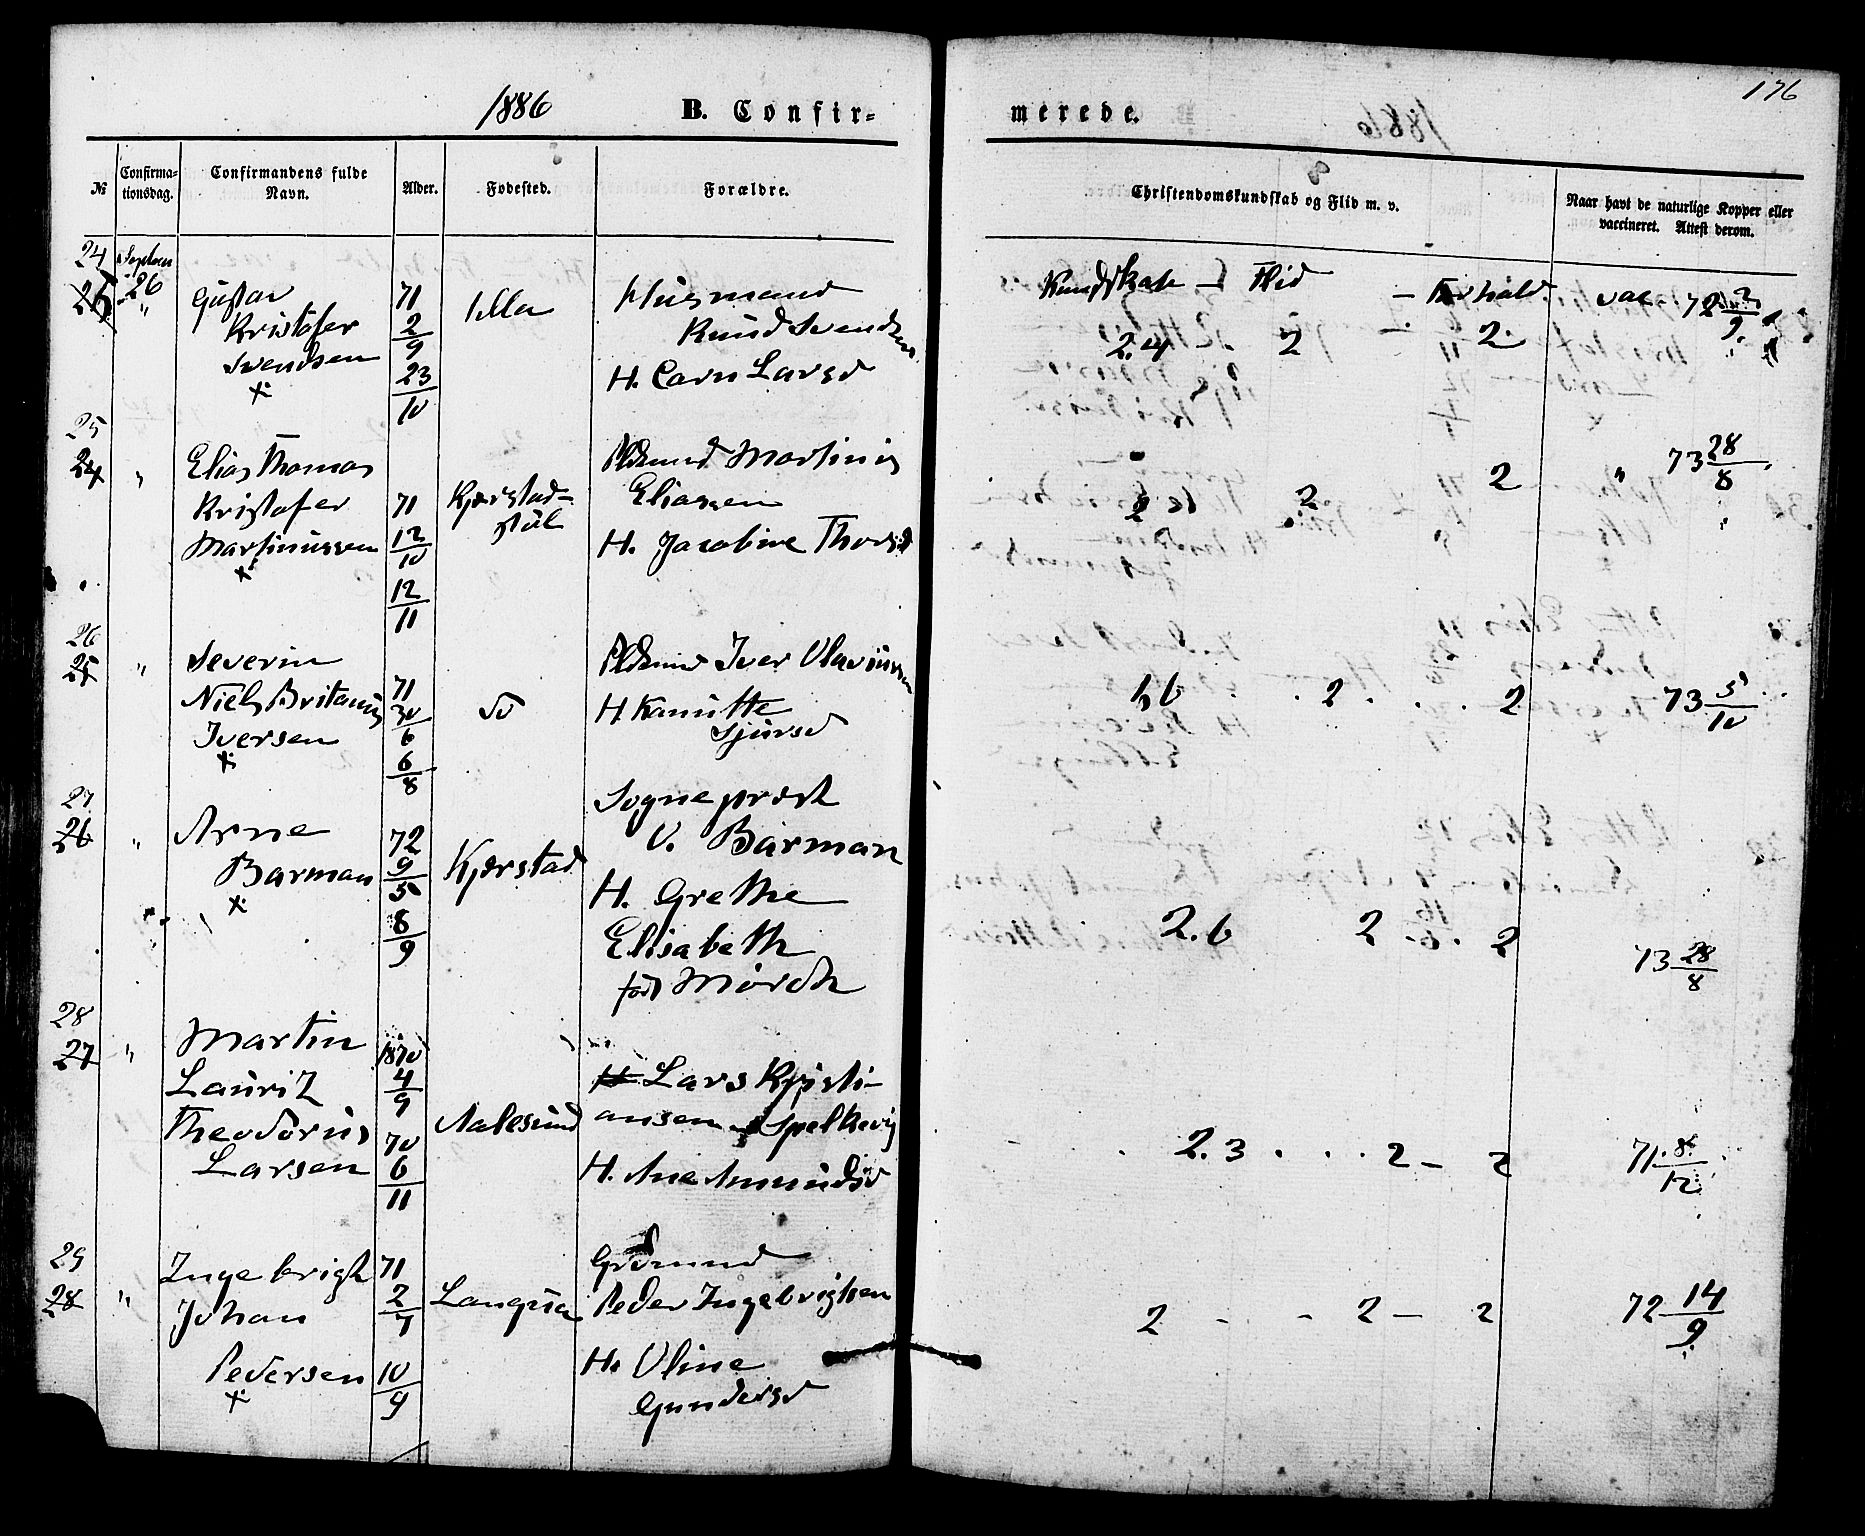 1886 B. Confir=
merede. 176
№ Confirma-tionsdag. Confirmandens fulde Navn. Alder. Fødested. Forældre.
Christendomskundskab og Flid m. v. Naar havt de naturlige Kopper eller vaccineret. Attest derom.
24 Septem 26
25 " Gustav 71 Ulla Husmand
Kristofer 2/9 Knud Svendsen
Svendsen 23/10 H. Caren Larsd
x
Kundskab – Flid – Forhold. vac 72 2/9
2.4 2 2.
25
24 " Elias Thomas Martinus
Kristofer 71 Kjærstad- Eliassen
Martinussen 12/10 støl H. Jacobine Thorsd
x 12/11
2 2 2 " 73 28/8
26
25 " Severin Iver Olavsen
Niels Britanus 71 do H Kanutte
Iversen 30/6 Sjursd
x 6/8
2 2 73 5/10
27 Sogneprest
26 " Arne 72 O. Barman
Barman 9/5 Kjærstad H. Grethe
x 8/9 Elisabeth
fød Mørch
2.6 2 2 73 28/8
28
27 " Martin 1870
Lauritz 4/9 H Lars Kristi-
Theodorius 70 Aalesund ansen Spelkevig
Larsen 6/11 H. Ane Amundsd
2.3 . . . 2 – 2 71 8/12
29 Ingebrigt 71 Grdmand
28 " Johan 2/7 Langua Peder Ingebrigtsen
Pedersen 10/9 H. Oline
x Gundersd
2 - - 2 – 2 72 14/9